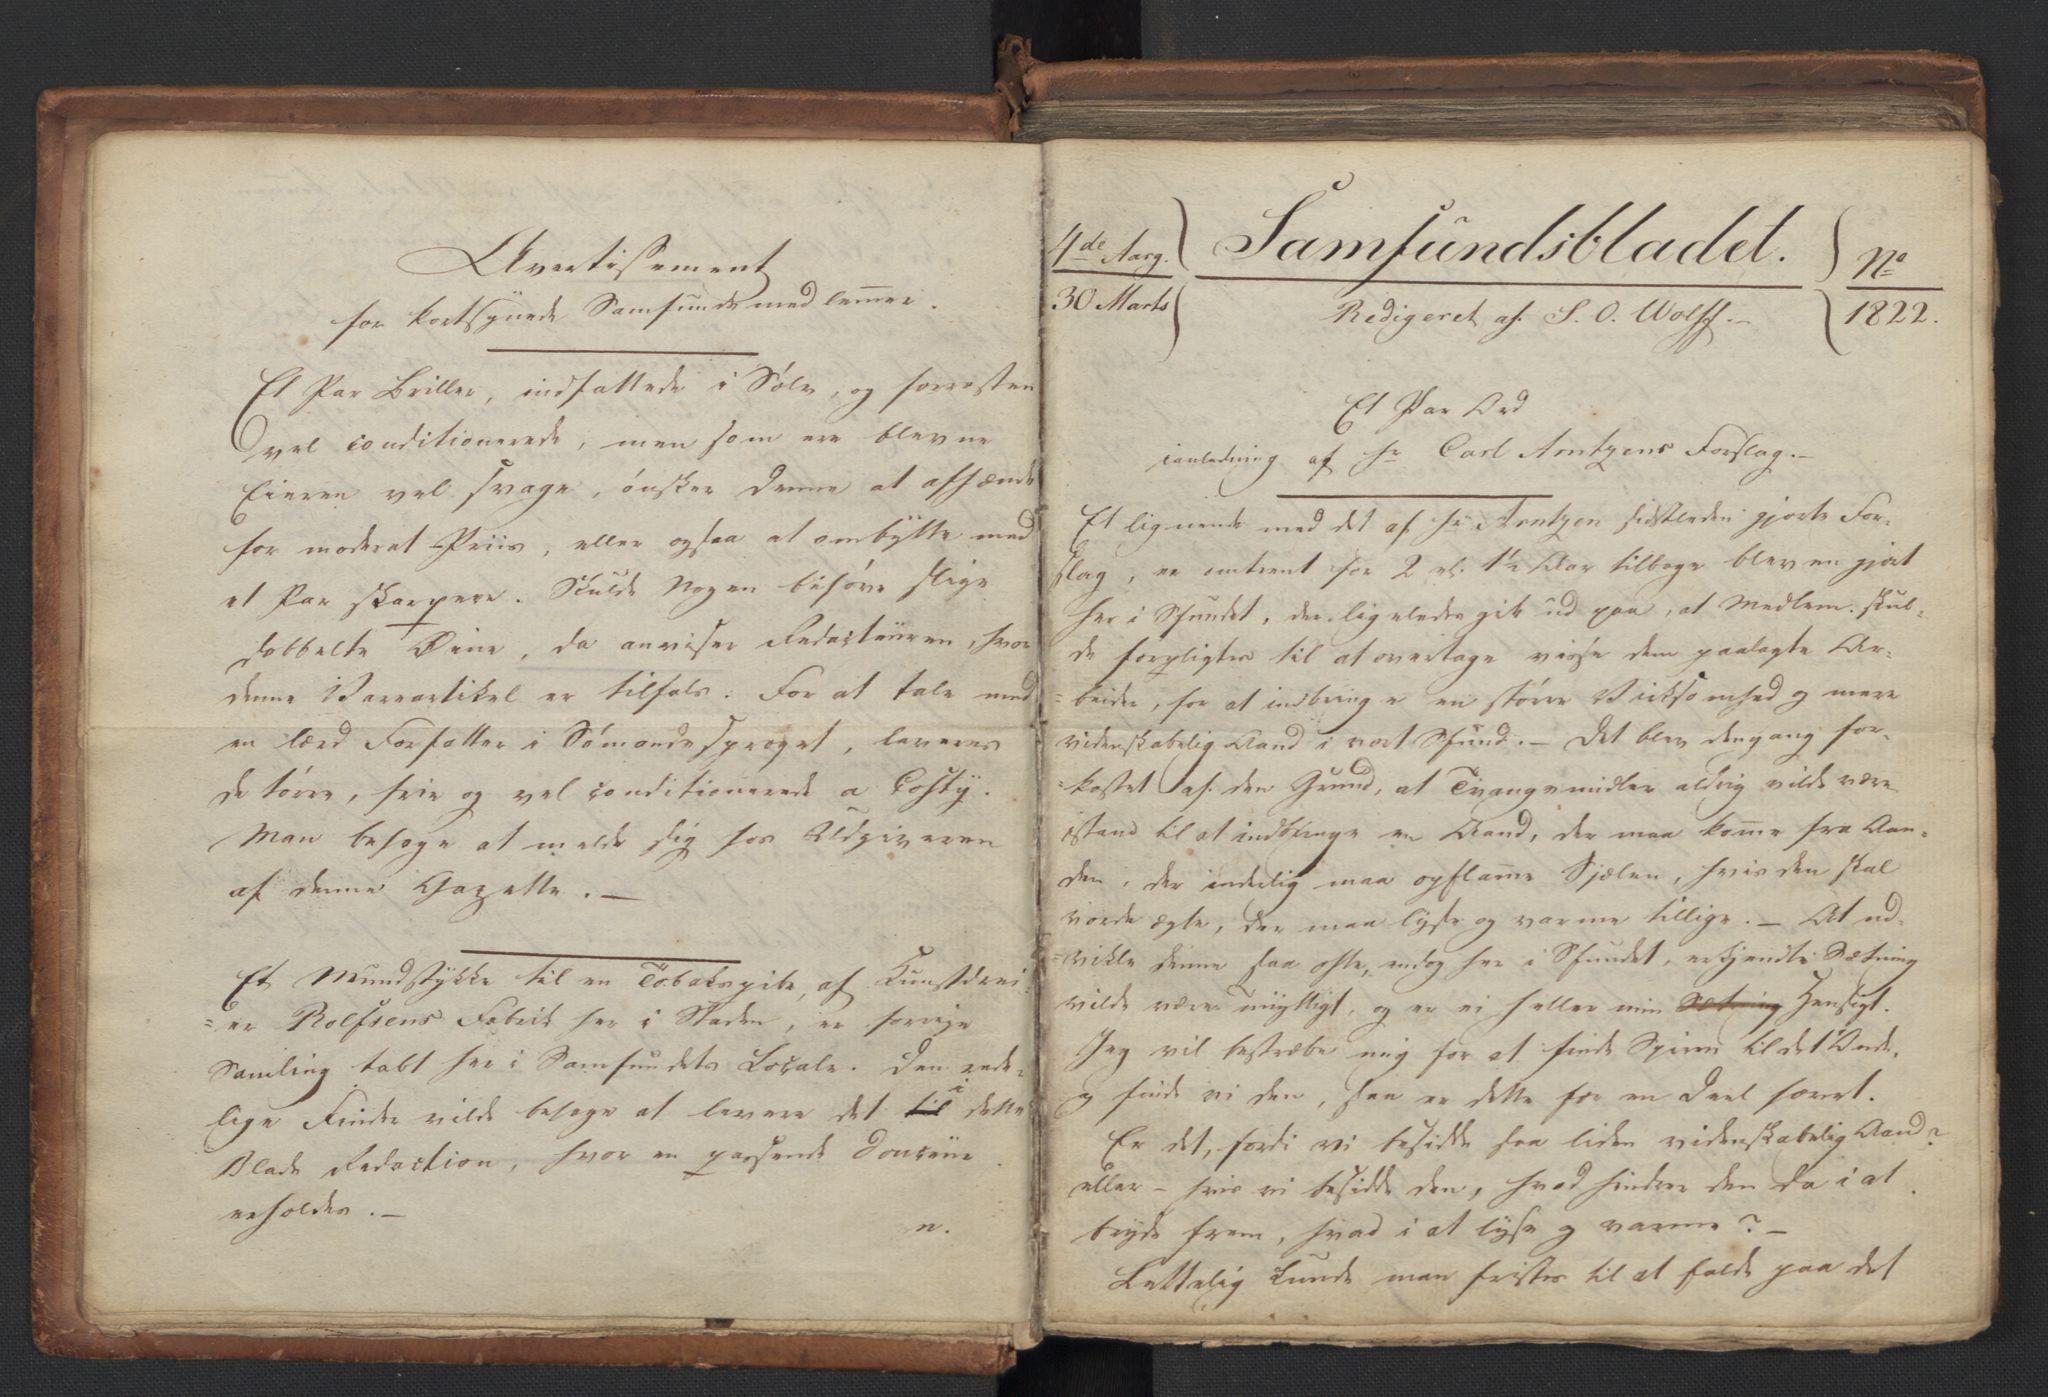 Avertissement
for kortsynede Samfundsmedlemmer.
Et Par Briller, indfattede i Sølv, og forresten
vel conditionerede, men som ere blevne
Eieren vel svage, ønsker denne at afhænde
for moderat Priis, eller ogsaa at ombytte med
et Par skarpere. Skulde Nogen behøve slige
dobbelte Øine, da anviser Redacteuren, hvor
denne Vareartikel er tilfals. For at tale med
en lærd Forfatter i Sømandssproget, leveres
de tørre, frie og vel conditionerede a Costy.
Man behage at melde sig hos Udgiveren
af denne Gazette. —
Et Mundstykke til en Tobakspibe, af Kunstdrei-
=er Rolfsens Fabrik her i Staden, er forrige
Samling tabt her i Samfundets Locale. Den rede-
lige Finder vilde behage at levere det til i dette
Blads Redaction, hvor en passende Douceur
erholdes. —
n.
4de Aarg. Samfundsbladet. No
30 Marts Redigeret af S. O. Wolff. — 1822.
Et Par Ord
ianledning af Hr Carl Arntzens Forslag. —
Et lignende med det af Hr Arntzen sidstleden gjorte For-
slag, er omtrent for 2 el. 1½ Aar tilbage bleven gjort
her i Sfundet, der ligeledes gik ud paa, at Medlem. skul-
de forpligtes til at overtage visse dem paalagte Ar-
=beider, for at indbringe en større Virksomhed og mere
videnskabelig Aand i vort Sfund. — Det blev dengang for-
=kastet af den Grund, at Tvangsmidler aldrig vilde være
istand til at indbringe en Aand, der maa komme fra Aan-
den, der inderlig maa opflamme Sjælen, hvis den skal
vorde ægte, der maa lyse og varme tillige. — At ud-
=vikle denne saa ofte, endog her i Sfundet, erkjendte Sætning
vilde være unyttigt, og er ei heller min Sætning Hensigt.
Jeg vil bestræbe mig for at finde Spiren til det Onde,
og finde vi den, saa er dette for en Deel hævet.
Er det, fordi vi besidde saa liden videnskabelig Aand?
eller — hvis vi besidde den, hvad hindrer den da i at
bryde frem, hvad i at lyse og varme? —
Lettelig kunde man fristes til at falde paa det